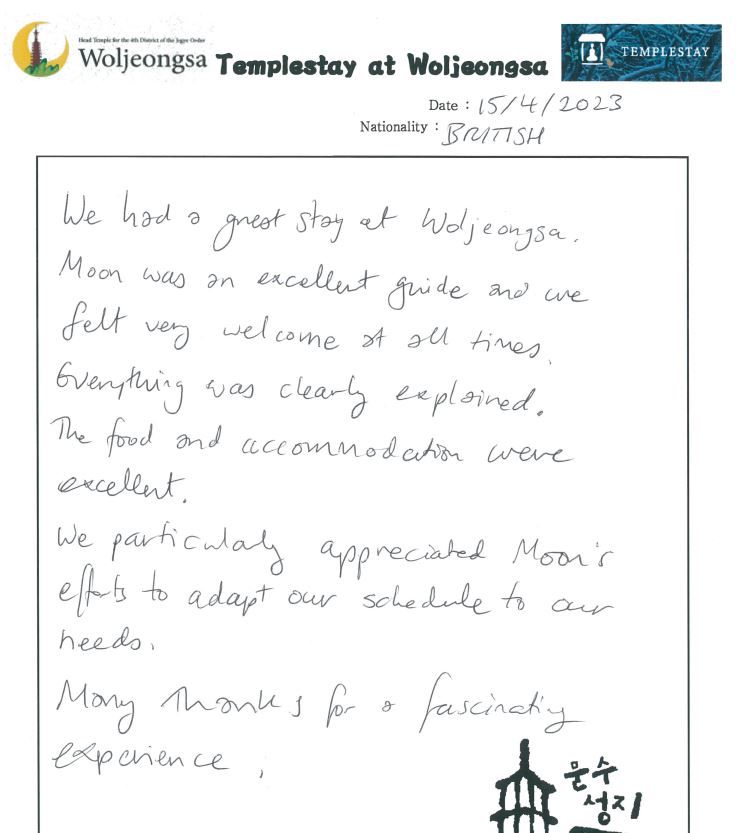 Head Temple for the 4th District of the Jogye Order
Woljeongsa
Templestay at Woljeongsa
TEMPLESTAY
Date : 15/4/2023
Nationality : BRITISH
We had a great stay at Woljeongsa.
Moon was an excellent guide and we
felt very welcome at all times.
Everything was clearly explained.
The food and accommodation were
excellent.
We particularly appreciated Moon's
efforts to adapt our schedule to our
needs.
Many thanks for a fascinating
experience.
문수
성지